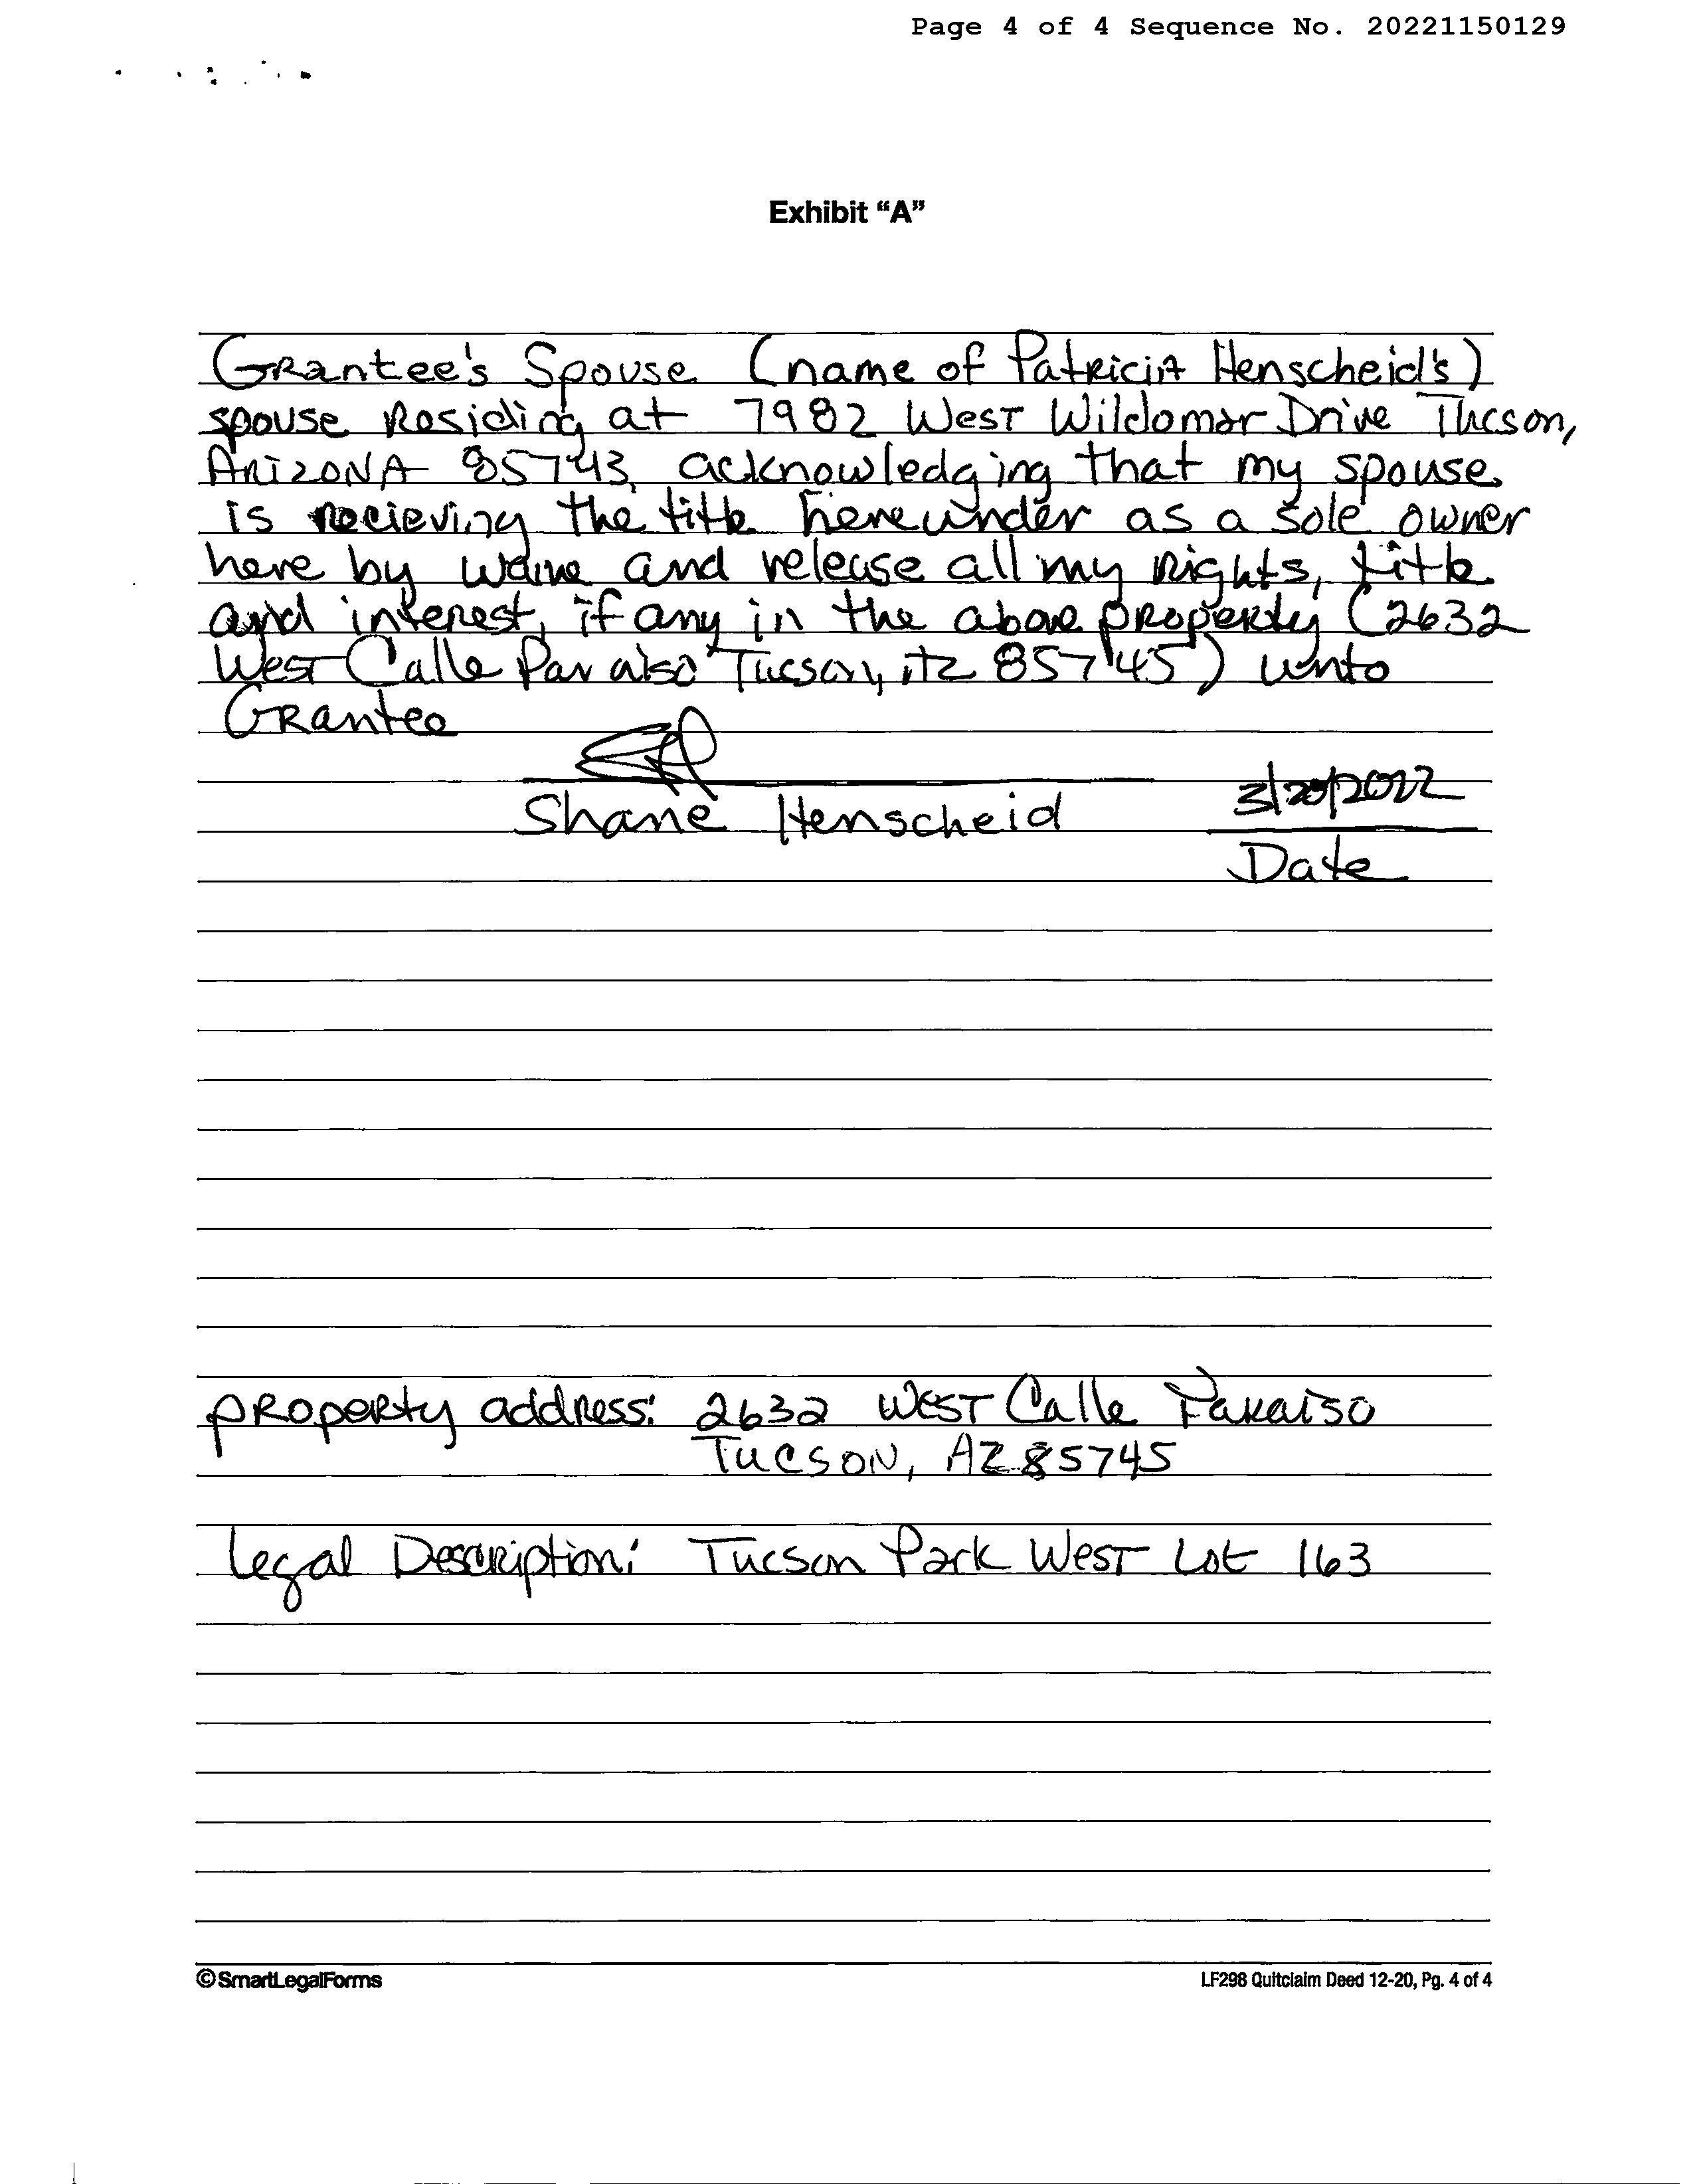 Page 4 of 4 Sequence No. 20221150129
Exhibit “A”
Grantee's Spouse (name of Patricia Henscheid's)
spouse Residing at 7982 West Wildomar Drive Tucson,
ARIZONA 85743, acknowledging that my spouse
is recieving the title hereunder as a sole owner
here by waive and release all my rights, title
and interest, if any in the above property (2632
West Calle Paraiso Tucson, AZ 85745) unto
Grantee
Shane Henscheid 3/20/2022
Date
property address: 2632 West Calle Paraiso
Tucson, AZ 85745
Legal Description: Tucson Park West Lot 163
© SmartLegalForms LF298 Quitclaim Deed 12-20, Pg. 4 of 4